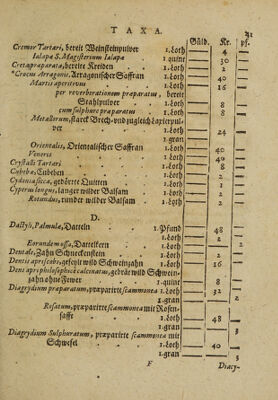 TAXA.
21
Güld. Kr. pf.
Cremor Tartari, bereit Weinsteinpulver 1. Loth 4
Jalapa S. Magisterium Jalapæ 1. quint 30
Cretapraparata, bereite Kreiden 1. Loth 2
*Crocus Arragonic. Arragonischer Saffran 1. Loth 40
Martis aperitivus 1. Loth 16
per reverberationem præparatus, bereit
Stahlpulver 1. Loth 8
cum sulphure præparatus 1. Loth
Metallorum, starck Brech- und zugleich Laxierpul-
ver 1. Loth 24
1. gran
Orientalis, Orientalischer Saffran 1. Loth 40
Veneris 1. Loth
Crystalli Tartari 1. Loth 8
Cubebæ, Cubeben 1. Loth 2
Cydonia sicca, gedörrte Quitten 1. Loth
Cyperus longus, langer wilder Balsam 1. Loth
Rotundus, runder wilder Balsam 1. Loth
D.
Dactyli, Palmulæ, Datteln 1. Pfund 48
1. Loth 2
Eorundem ossa, Dattelkern 1. Loth
Dentale, Zahn Schneckenstein 1. Loth 2
Dentis apri scobs, gefeylt wild Schweinzahn 1. Loth 16
Dens apri philosophicè calcinatus, gebrādt wild Schwein-
zahn ohne Fewer 1. quint 8
Diagrydium præparatum, præparirte scammonea 1. Loth 32
1. gran 2
Rosatum, præparirte scammonea mit Rosen-
safft 1. Loth 48
1. gran
Diagrydium Sulphuratum, præparirte scammonea mit
Schwefel 1. Loth 40
1. gran
F
Diacy-